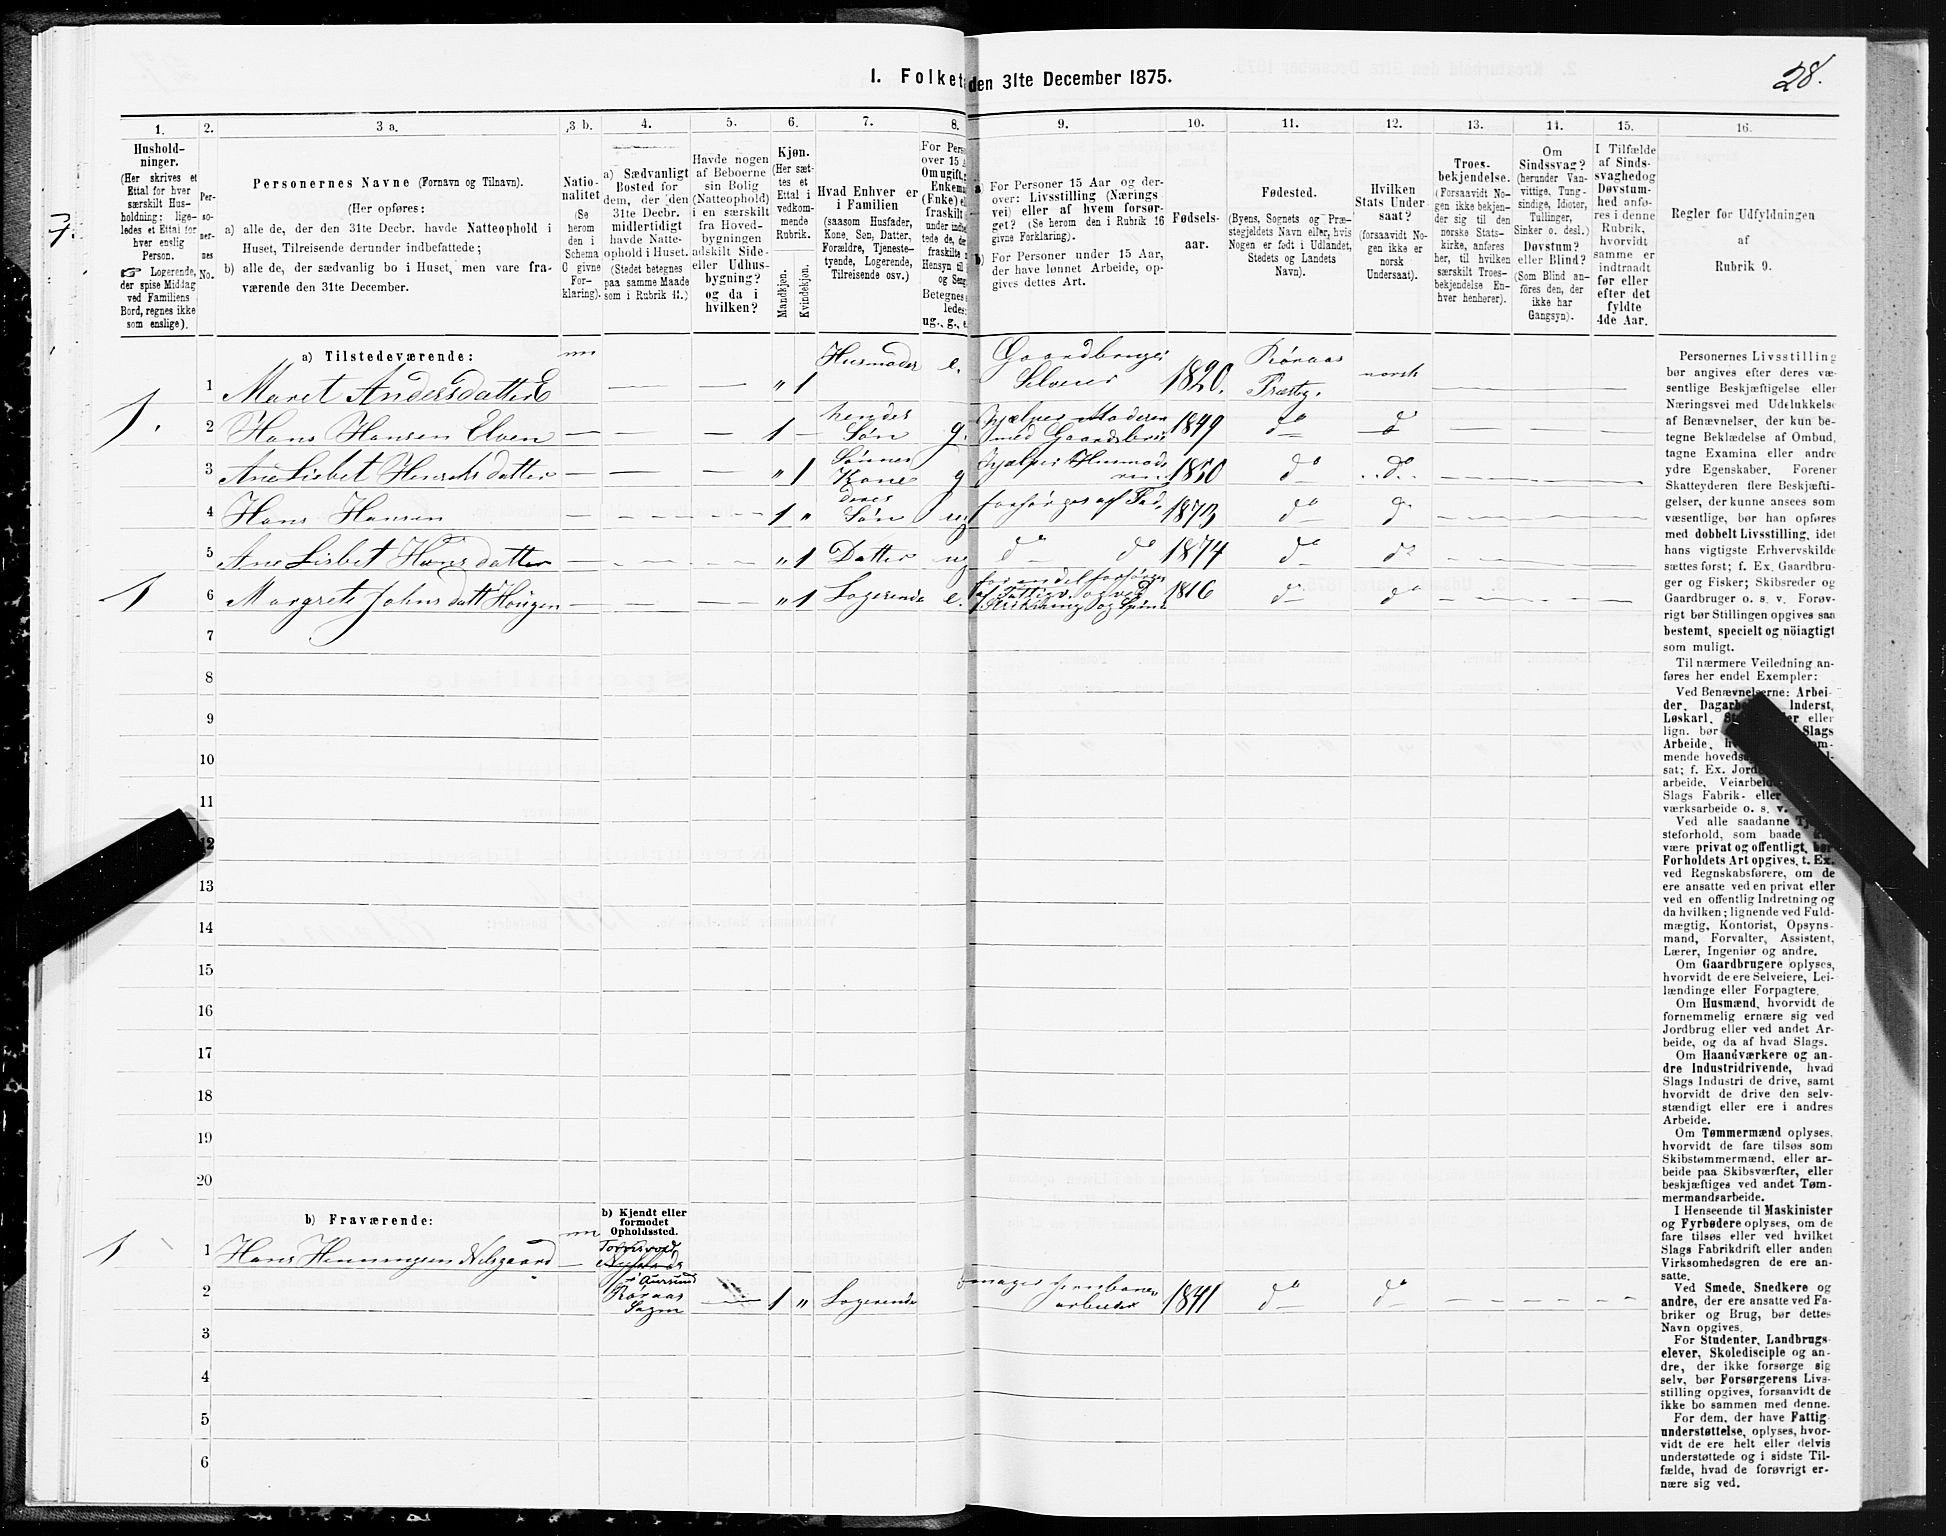 I. Folket den 31te December 1875.
28.
1. 2. 3 a. 3 b. 4. 5. 6. 7. 8. 9. 10. 11. 12. 13. 14. 15. 16.
Hushold-
ninger.
(Her skrives et
Ettal for hver
særskilt Hus-
holdning; lige-
ledes et Ettal for
hver enslig
Person.
☞ Logerende,
der spise Middag
ved Familiens
Bord, regnes ikke
som enslige).
Per-
so-
ner-
nes
No.
Personernes Navne (Fornavn og Tilnavn).
(Her opføres:
a) alle de, der den 31te Decbr. havde Natteophold i
Huset, Tilreisende derunder indbefattede;
b) alle de, der sædvanlig bo i Huset, men vare fra-
værende den 31te December.
Natio-
nalitet
(Se
herom
den i
Schema
C givne
For-
klaring).
a) Sædvanligt
Bosted for
dem, der den
31te Decbr.
midlertidigt
havde Natte-
ophold i Huset.
(Stedet betegnes
paa samme Maade
som i Rubrik 11.)
Havde nogen
af Beboerne
sin Bolig
(Natteophold)
i en særskilt
fra Hoved-
bygningen
adskilt Side-
eller Udhus-
bygning?
og da i
hvilken?
Kjøn.
(Her sæt-
tes et
Ettal i
vedkom-
mende
Rubrik.
Mandkjøn.
Kvindekjøn.
Hvad Enhver er
i Familien
(saasom Husfader,
Kone, Søn, Datter,
Forældre, Tjeneste-
tyende, Logerende,
Tilreisende osv.)
For Pers
over 15 A
Om ugift, g
Enkema
(Enke) el
fraskilt
under indbe
tede de, de
fraskilte
Hensyn til
og Seng
Betegnes
ledes:
ug., g., e
a) For Personer 15 Aar og der-
over: Livsstilling (Nærings
vei) eller af hvem forsør-
get? (Se herom den i Rubrik 16
givne Forklaring).
b) For Personer under 15 Aar,
der have lønnet Arbeide, op-
gives dettes Art.
Fødsels-
aar.
Fødested.
(Byens, Sognets og Præ-
stegjeldets Navn eller, hvis
Nogen er født i Udlandet,
Stedets og Landets
Navn).
Hvilken
Stats Under
saat?
(forsaavidt No-
gen ikke er
norsk
Undersaat).
Troes-
bekjendelse.
(Forsaavidt No-
gen ikke bekjen-
der sig til den
norske Stats-
kirke, anføres
her, til hvilken
særskilt Troes-
bekjendelse En-
hver henhører).
Om
Sindssvag?
(herunder Van-
vittige, Tung-
sindige, Idioter,
Tullinger,
Sinker o. desl.)
Døvstum?
eller Blind?
(Som Blind an-
føres den, der
ikke har
Gangsyn).
I Tilfælde
af Sinds-
svaghed og
Døvstum-
hed anfø-
res i denne
Rubrik,
hvorvidt
samme er
indtraadt
før eller
efter det
fyldte
4de Aar.
Regler for Udfyldningen
af
Rubrik 9.
a) Tilstedeværende:
1 Maret Andersdatter E — — „ 1 Husmoder e. Gaardbruger Selveier 1820. Røraas Præstg. norsk — — —
1. 2 Hans Hansen Elven — — — 1 — hendes Søn g. hjælper Moderen med Gaardsbrug 1849 do do
3 Ane Lisbet Henriksdatter — — — „ 1 Sønnes Kone g 1850 do do
4 Hans Hansen — — — 1 „ deres Søn ug forsørges af Fad. 1873 do do
5 Ane Lisbet Hansdatter — — — „ 1 Datter ug do do 1874 do do
1 6 Margrete Johnsdatt Hougen — — — „ 1 Logerende e. for endel forsørges af Fattigv. og ved Strikking og Spind 1816 do do
7
8
9
10
11
12
13
14
15
16
17
18
19
20
b) Fraværende:
b) Kjendt eller
formodet
Opholdssted.
1 1 Hans Henningsen Nilsgaard — Aursund
2 Røraas Sogn — 1 „ Logerende Jernbane-
arbeider 1841 do do
3
4
5
6
Personernes Livsstilling
bør angives efter deres væ-
sentlige Beskjæftigelse eller
Næringsvei med Udelukkelse
af Benævnelser, der kun be-
tegne Beklædelse af Ombud,
tagne Examina eller andre
ydre Egenskaber. Forener
Skatteyderen flere Beskjæfti-
gelser, der kunne ansees som
væsentlige, bør han opføres
med dobbelt Livsstilling, idet
hans vigtigste Erhvervskilde
sættes først; f. Ex. Gaardbru-
ger og Fisker; Skibsreder og
Gaardbruger o. s. v. Forøv-
rigt bør Stillingen opgives saa
bestemt, specielt og nöiagtigt
som muligt.
Til nærmere Veiledning an-
føres her endel Exempler:
Ved Benævnelserne: Arbei-
der, Dagarbe Inderst,
Løskarl, St eller
lign. bør Slags
Arbeide, h om-
mende hoveds
sat; f. Ex. Jord
arbeide, Veiarbeid
Slags Fabrik- eller
værksarbeide o. s. v.
Ved alle saadanne Tj
steforhold, som baade
være privat og offentligt, bør
Forholdets Art opgives, t. Ex.
ved Regnskabsførere, om de
ere ansatte ved en privat eller
ved en offentlig Indretning og
da hvilken; lignende ved Fuld-
mægtig, Kontorist, Opsyns-
mand, Forvalter, Assistent,
Lærer, Ingeniør og andre.
Om Gaardbrugere oplyses,
hvorvidt de ere Selveiere, Lei-
lændinge eller Forpagtere.
Om Husmænd, hvorvidt de
fornemmelig ernære sig ved
Jordbrug eller ved andet Ar-
beide, og da af hvad Slags.
Om Haandværkere og an-
dre Industridrivende, hvad
Slags Industri de drive, samt
hvorvidt de drive den selv-
stændigt eller ere i andres
Arbeide.
Om Tømmermænd oplyses,
hvorvidt de fare tilsøs som
Skibstømmermænd, eller ar-
beide paa Skibsværfter, eller
beskjæftiges ved andet Tøm-
mermandsarbeide.
I Henseende til Maskinister
og Fyrbødere oplyses, om de
fare tilsøs eller ved hvilket
Slags Fabrikdrift eller anden
Virksomhedsgren de ere an-
satte.
Ved Smede, Snedkere og
andre, der ere ansatte ved Fa-
briker og Brug, bør dettes
Navn opgives.
For Studenter, Landbrugs-
elever, Skoledisciple og an-
dre, der ikke forsørge sig
selv, bør Forsørgerens Livs-
stilling opgives, forsaavidt de
ikke bo sammen med denne.
For dem, der have Fattig-
understøttelse, oplyses, hvor-
vidt de ere helt eller delvis
understøttede og i sidste Til-
fælde, hvad de forøvrigt er-
nære sig ved.